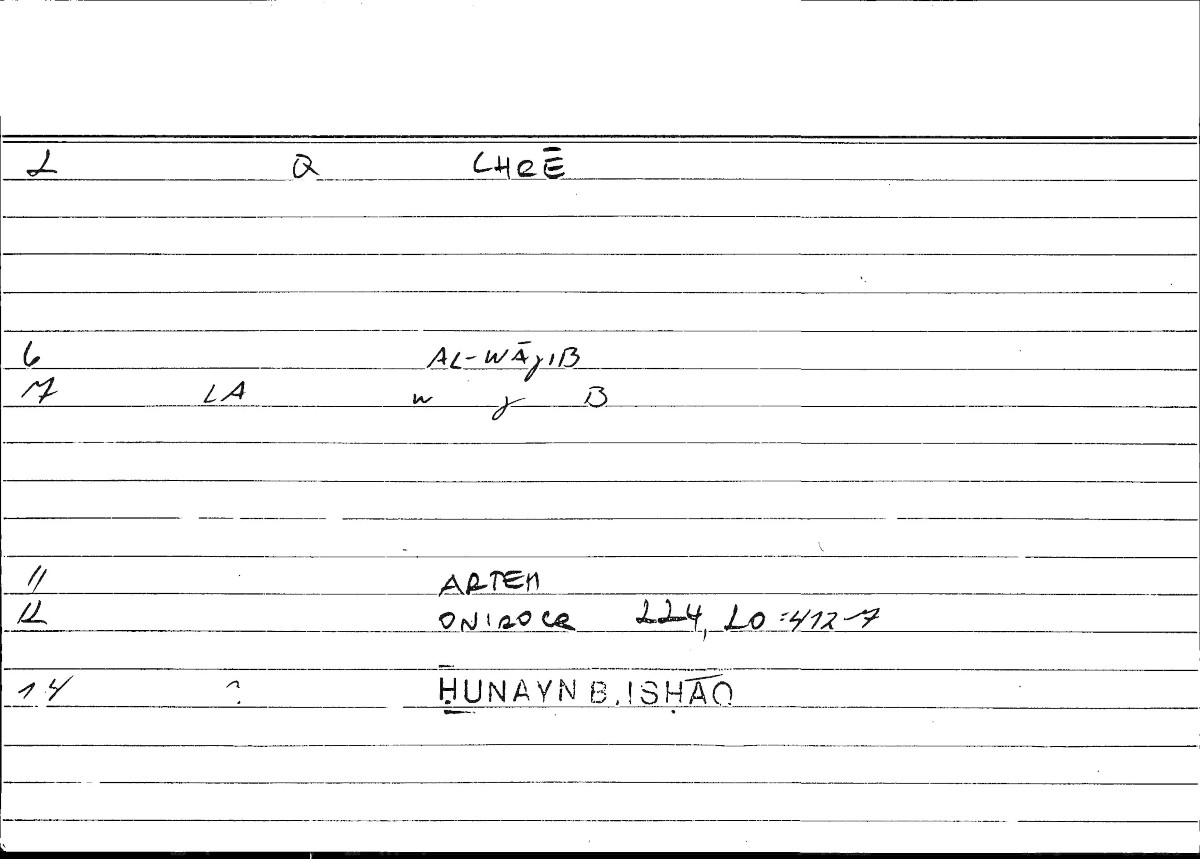 2 Q CHRĒ
6 AL-WĀŷIB
7 LA w ŷ B
11 ARTEM
12 ONIROCR 224, 20 = 412-7
14 ? ḤUNAYN B. ISḤĀQ